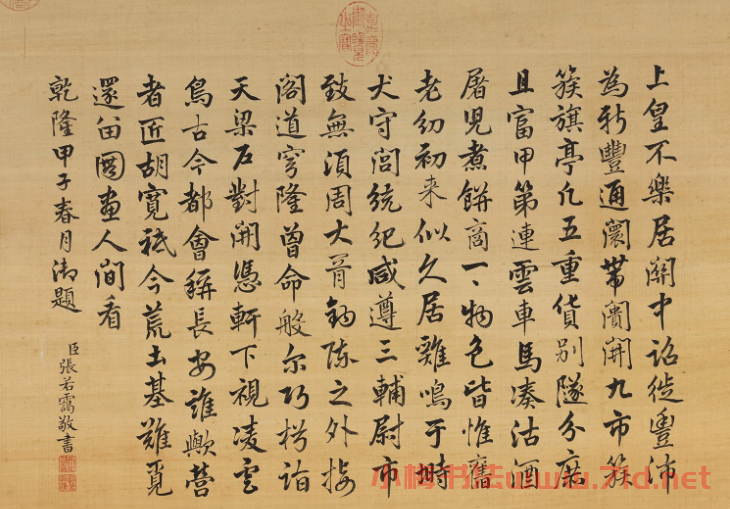 上皇不樂居關中詔徙豐沛
為新豐通闤帶闠開九市簇
簇旗亭凡五重貨別隧分廛
且富甲第連雲車馬湊沽酒
屠兒煮餅商一一物色皆惟舊
老幼初来似久居雞鳴于塒
犬守閭統紀咸遵三輔尉市
致無須周大胥鉤陳之外接
閣道穹隆曾命般尔巧枍詣
天梁石對開憑軒下視凌雲
鳥古今都會稱長安誰歟營
者匠胡寬祗今荒土基難覓
還留圖畫人間看
乾隆甲子春月御題
臣張若靄敬書
小楷书法www.71d.net